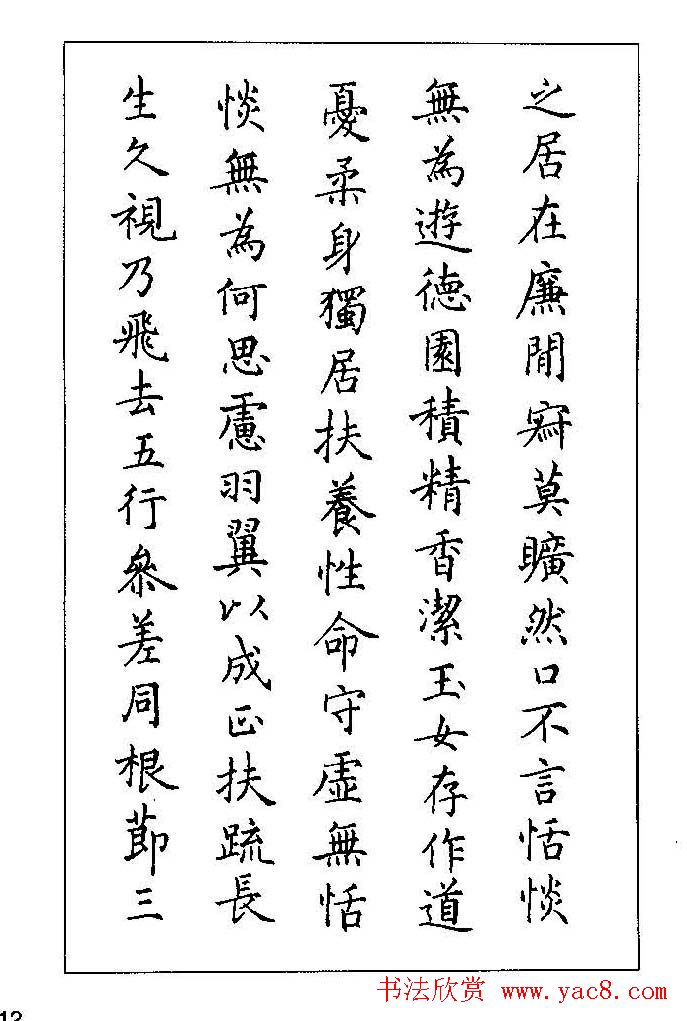 之居在廉閒寂莫曠然口不言恬惔
無為遊德園積精香潔玉女存作道
憂柔身獨居扶養性命守虛無恬
惔無為何思慮羽翼以成正扶疏長
生久視乃飛去五行參差同根節三
12
书法欣赏 www.yac8.com